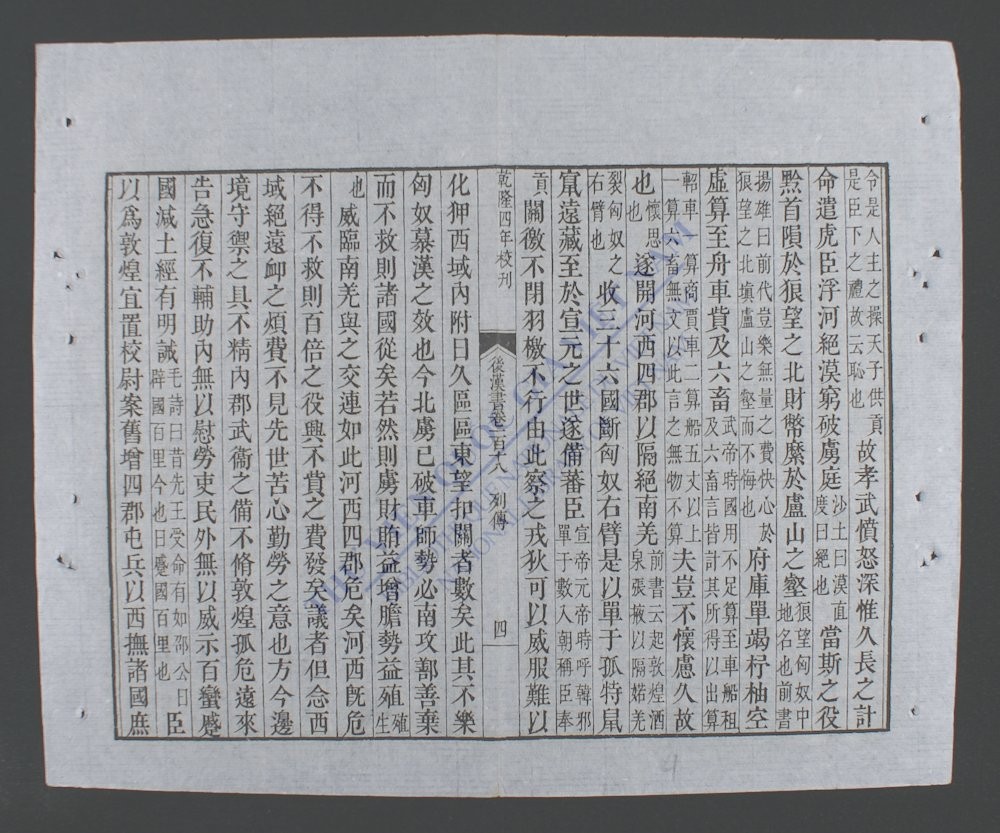 令是人主之操天子供貢
是臣下之禮故云恥也
故孝武憤怒深惟久長之計
命遣虎臣浮河絕漠窮破虜庭
沙土曰漠直
度曰絕也
當斯之役
黔首隕於狼望之北財幣糜於盧山之壑
狼望匈奴中
地名也前書
揚雄曰前代豈樂無量之費快心於
狼望之北填盧山之壑而不悔也
府庫單竭杼柚空
虛算至舟車貲及六畜
武帝時國用不足算至車船租
及六畜言皆計其所得以出算
軺車一算商賈車二算船五丈以上
一算六畜無文以此言之無物不算
夫豈不懷慮久故
也
懷思
也
遂開河西四郡以隔絕南羌
前書云起敦煌酒
泉張掖以隔婼羌
裂匈奴之
右臂也
收三十六國斷匈奴右臂是以單于孤特鼠
竄遠藏至於宣元之世遂備蕃臣
宣帝元帝時呼韓邪
單于數入朝稱臣奉
貢
關徼不閉羽檄不行由此察之戎狄可以威服難以
乾隆四年校刊
後漢書卷一百十八 列傳
四
化狎西域內附日久區區東望扣關者數矣此其不樂
匈奴慕漢之效也今北虜已破車師勢必南攻鄯善棄
而不救則諸國從矣若然則虜財賄益增膽勢益殖
殖
生
也
威臨南羌與之交連如此河西四郡危矣河西旣危
不得不救則百倍之役興不貲之費發矣議者但念西
域絕遠卹之煩費不見先世苦心勤勞之意也方今邊
境守禦之具不精內郡武衞之備不脩敦煌孤危遠來
告急復不輔助內無以慰勞吏民外無以威示百蠻蹙
國減土經有明誡
毛詩曰昔先王受命有如邵公日
辟國百里今也日蹙國百里也
臣
以爲敦煌宜置校尉案舊增四郡屯兵以西撫諸國庶
THƯ VIỆN QUỐC GIA VIỆT NAM
BIBLIOTHÈQUE NATIONALE DU VIETNAM
NATIONAL LIBRARY OF VIETNAM
4